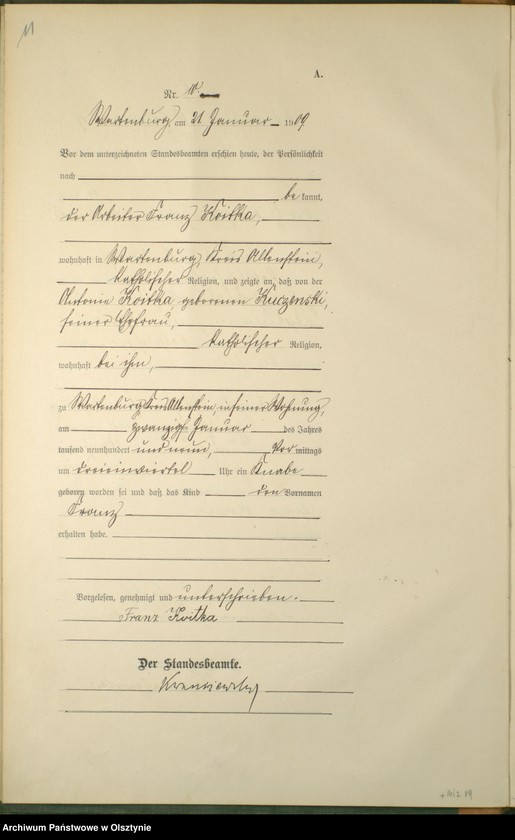 11
A.
Nr. 10.
Wartenburg am 21 Januar 1909
Vor dem unterzeichneten Standesbeamten erschien heute, der Persönlichkeit
nach
be kannt,
der Arbeiter Franz Koitka,
wohnhaft in Wartenburg, Kreis Allenstein,
katholischer Religion, und zeigte an, daß von der
Antonie Koitka, geborenen Kuczenski,
seiner Ehefrau,
katholischer Religion,
wohnhaft bei ihm,
zu Wartenburg Kreis Allenstein, in seiner Wohnung,
am zwanzigsten Januar des Jahres
tausend neunhundert und neun, Vor mittags
um dreieinviertel Uhr ein Knabe
geboren worden sei und daß das Kind den Vornamen
Franz
erhalten habe.
Vorgelesen, genehmigt und unterschrieben.
Franz Koitka
Der Standesbeamte.
Archiwum Państwowe w Olsztynie